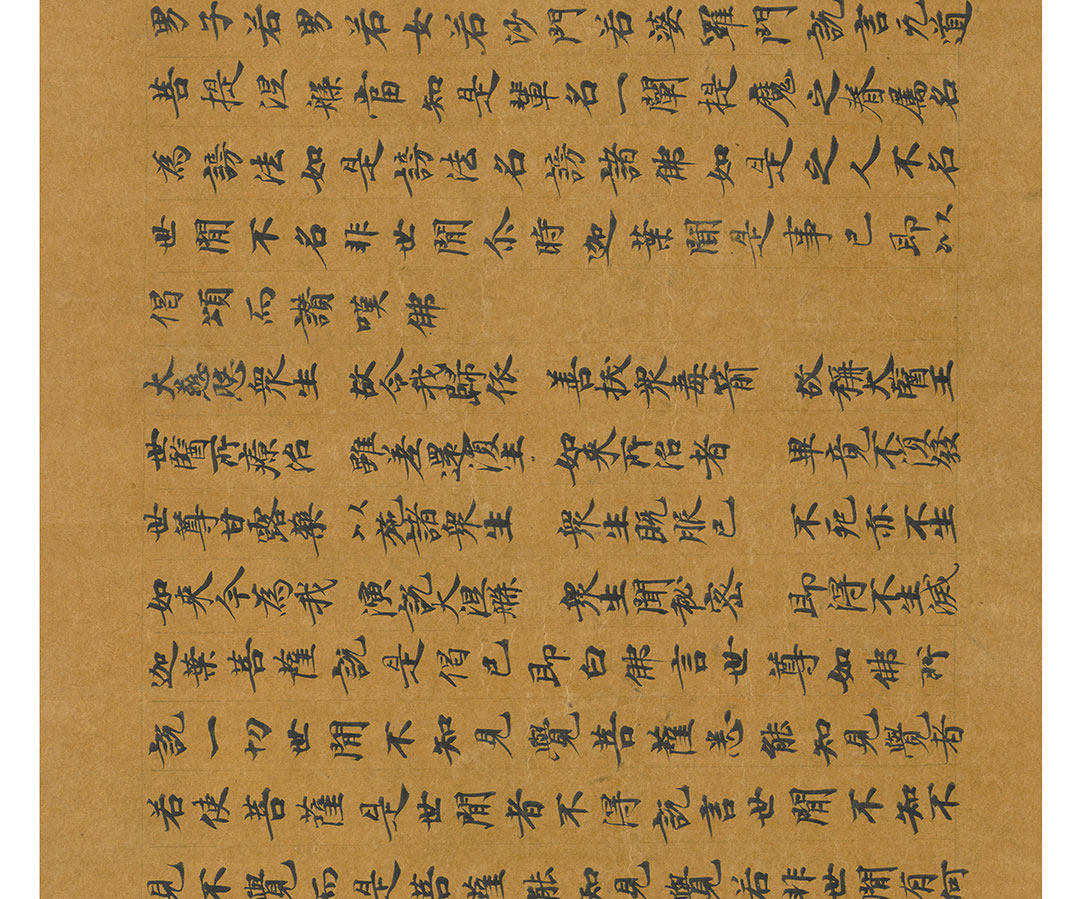 男子若男若女若沙門若婆羅門說言无道
菩提涅槃當知是輩名一闡提魔之眷屬名
為謗法如是謗法名謗諸佛如是之人不名
世間不名非世間尒時迦葉聞是事已即以
偈頌而讚嘆佛
大慈愍衆生 故令我歸依 善拔衆毒箭 故稱大醫王
世醫所療治 雖差還復生 如来所治者 畢竟不復發
世尊甘露藥 以施諸衆生 衆生既服已 不死亦不生
如来今為我 演說大涅槃 衆生聞秘密 即得不生滅
迦葉菩薩說是偈已即白佛言世尊如佛所
說一切世間不知見覺菩薩悉能知見覺者
若使菩薩是世間者不得說言世間不知不
見不覺而是菩薩能知見覺若非世間有何